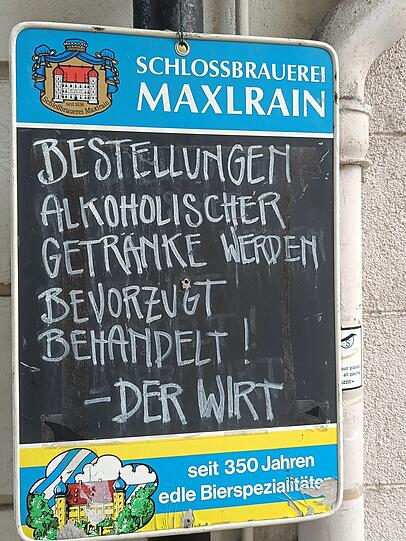 SCHLOSSBRAUEREI
MAXLRAIN
Schloßbrauerei Maxlrain
BESTELLUNGEN
ALKOHOLISCHER
GETRÄNKE WERDEN
BEVORZUGT
BEHANDELT!
-DER WIRT
seit 350 Jahren
edle Bierspezialitäte